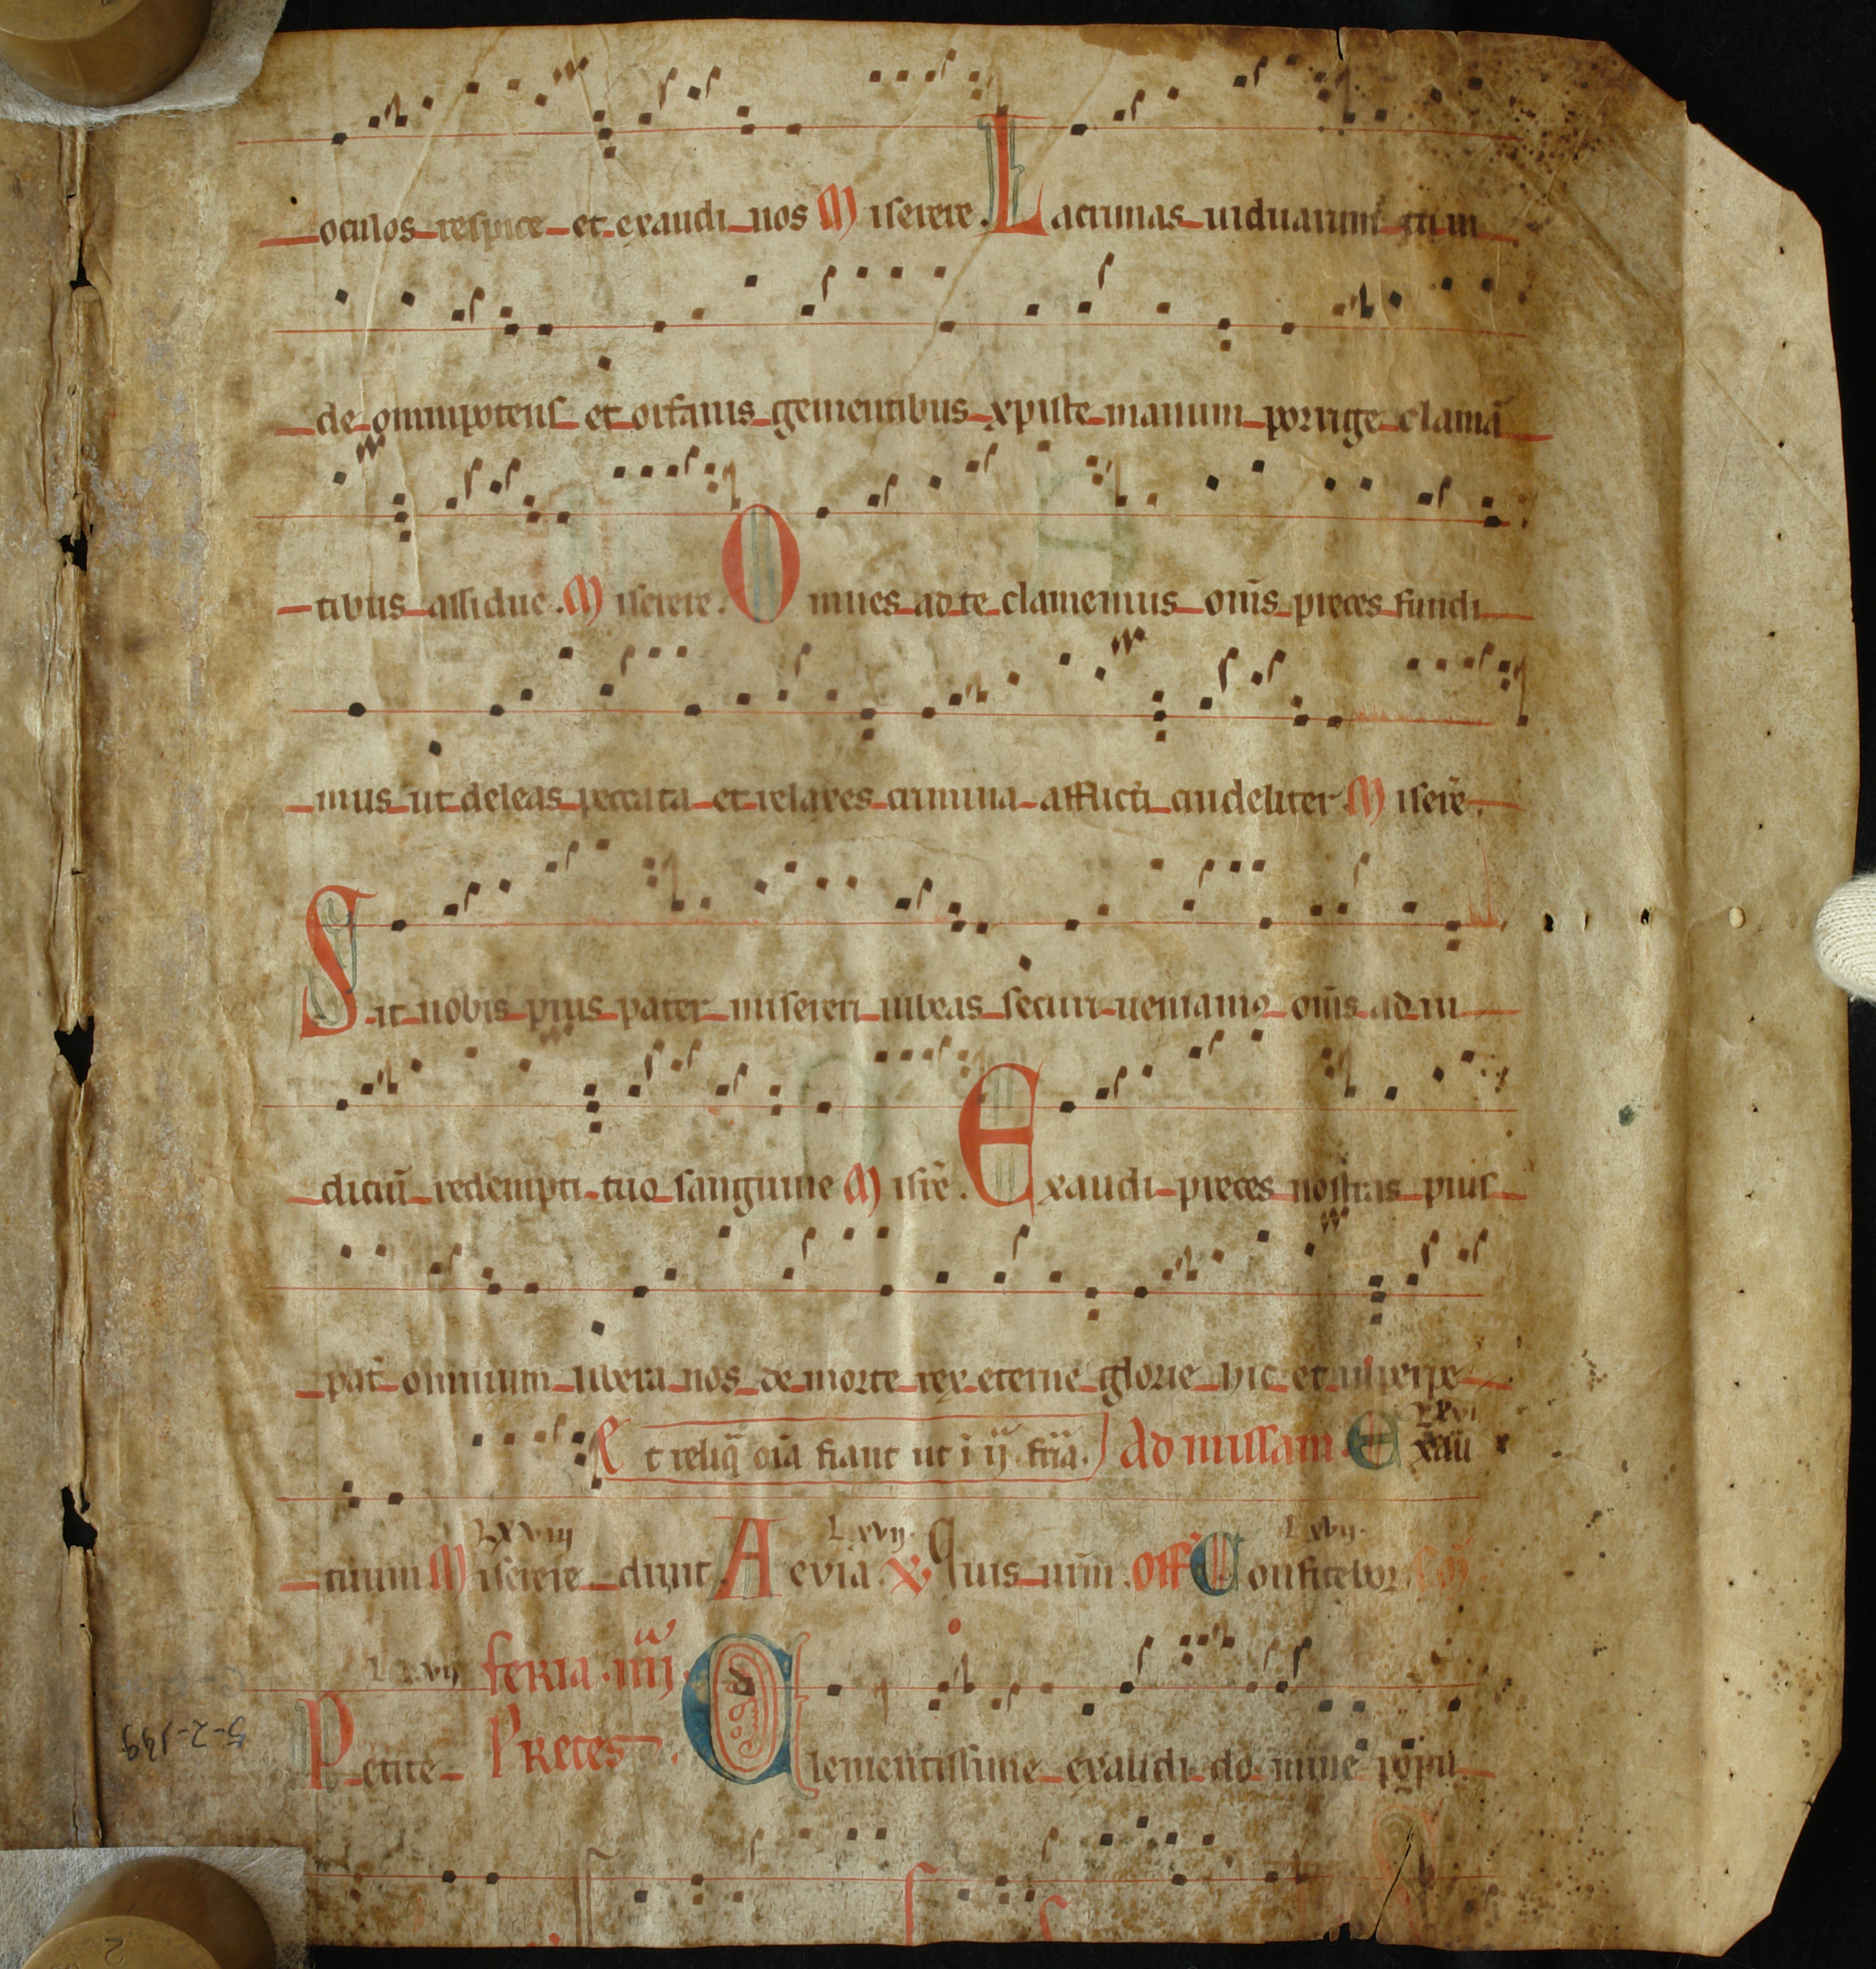 oculos respice et exaudi nos Miserere. Lacrimas uiduarum cum
de omnipotens et orfanis gementibus xpiste manum porrige clamā
tibus assidue. Miserere. Omnes ad te clamemus om̄s preces fundi
mus ut deleas peccata et relaxes crimina afflicti crudeliter Miserē.
Sit nobis pius pater misereri iubeas securi ueniamꝰ om̄s ad iu
diciū redempti tuo sanguine Misr̄e. Exaudi preces nostras pius
pat̄ omnium libera nos de morte rex eterne glorie hic et in perpe
Et reliq̄ oīa fiant ut i ij fr̄ia. Ad missam. Exau
Lxviij Lxvij. Lxvij.
tuum Miserere dīnt. Aevia. Quis nr̄m. Off Confitebor
feria. iiij.
Petite Preces. Clementissime exaudi domine popu
5-2-149